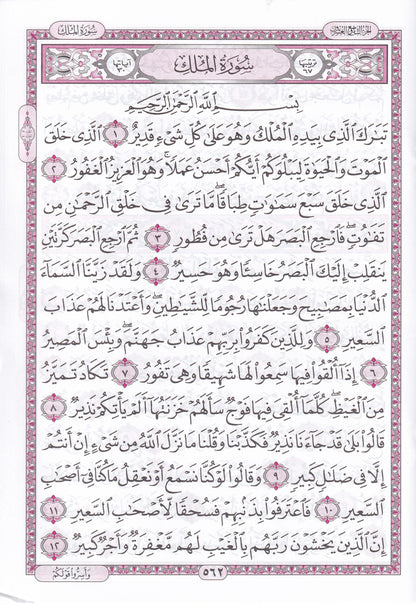 الجزء التاسع والعشرون
سورة الملك
ترتيبها ٦٧
سورة الملك
آياتها ٣٠
بسم الله الرحمن الرحيم
تبارك الذي بيده الملك وهو على كل شيء قدير ١ الذي خلق
الموت والحيوة ليبلوكم أيكم أحسن عملا وهو العزيز الغفور ٢
الذي خلق سبع سموات طباقا ما ترى في خلق الرحمن من
تفوت فارجع البصر هل ترى من فطور ٣ ثم ارجع البصر كرتين
ينقلب إليك البصر خاسئا وهو حسير ٤ ولقد زينا السماء
الدنيا بمصابيح وجعلناها رجوما للشياطين وأعتدنا لهم عذاب
السعير ٥ وللذين كفروا بربهم عذاب جهنم وبئس المصير
٦ إذا ألقوا فيها سمعوا لها شهيقا وهي تفور ٧ تكاد تميز
من الغيظ كلما ألقي فيها فوج سألهم خزنتها ألم يأتكم نذير ٨
قالوا بلى قد جاءنا نذير فكذبنا وقلنا ما نزل الله من شيء إن أنتم
إلا في ضلال كبير ٩ وقالوا لو كنا نسمع أو نعقل ما كنا في أصحاب
السعير ١٠ فاعترفوا بذنبهم فسحقا لأصحاب السعير ١١
إن الذين يخشون ربهم بالغيب لهم مغفرة وأجر كبير ١٢
٥٦٢
وأسروا قولكم